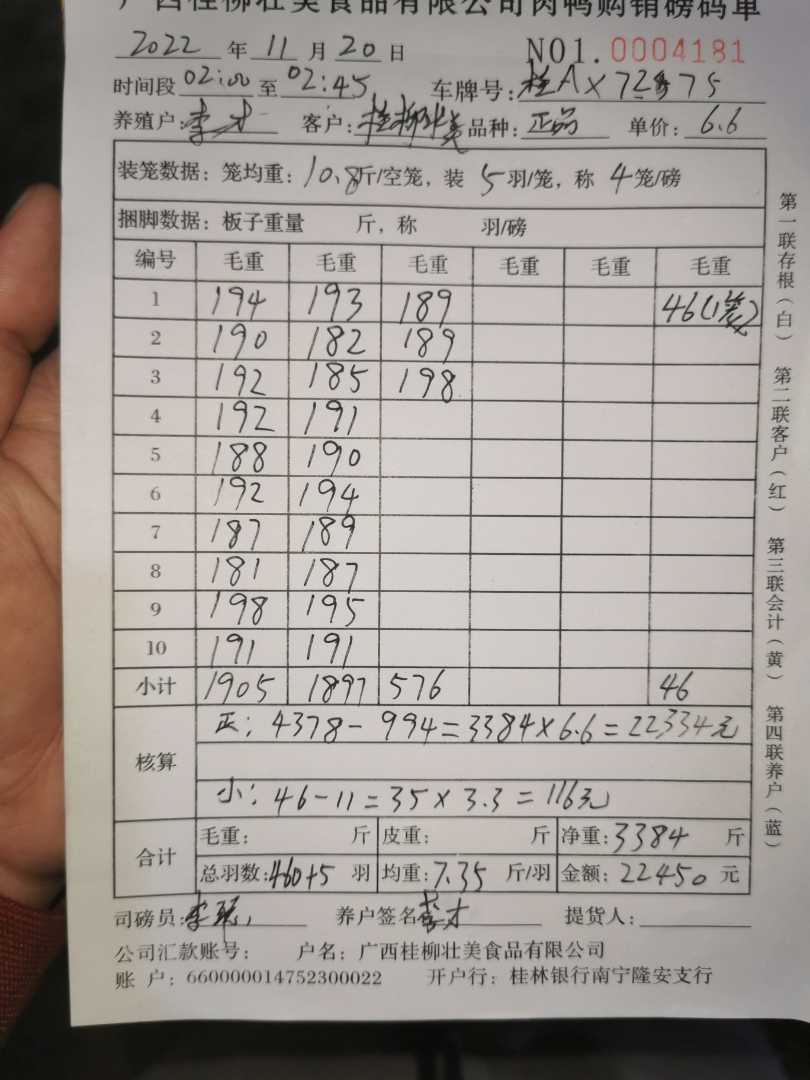 广西桂柳壮美食品有限公司肉鸭购销磅码单
2022 年 11 月 20 日 NO1.0004181
时间段 02:00 至 02:45 车牌号: 桂A
养殖户: 李才 客户: 桂柳壮美 品种: 正品 单价: 6.6
装笼数据: 笼均重: 10.8斤/空笼, 装 5 羽/笼, 称 4 笼/磅
捆脚数据: 板子重量 斤, 称 羽/磅
编号 毛重 毛重 毛重 毛重 毛重 毛重
1 194 193 189 46(1笼)
2 190 182 189
3 192 185 198
4 192 191
5 188 190
6 192 194
7 187 189
8 181 187
9 198 195
10 191 191
小计 1905 1897 576 46
核算
正: 4378-994=3384×6.6=22334元
小: 46-11=35×3.3=116元
合计
毛重: 斤 皮重: 斤 净重: 3384 斤
总羽数: 460+5 羽 均重: 7.35 斤/羽 金额: 22450 元
司磅员: 养户签名 李才 提货人:
公司汇款账号: 户名: 广西桂柳壮美食品有限公司
账 户: 660000014752300022 开户行: 桂林银行南宁隆安支行
第一联存根(白) 第二联客户(红) 第三联会计(黄) 第四联养户(蓝)